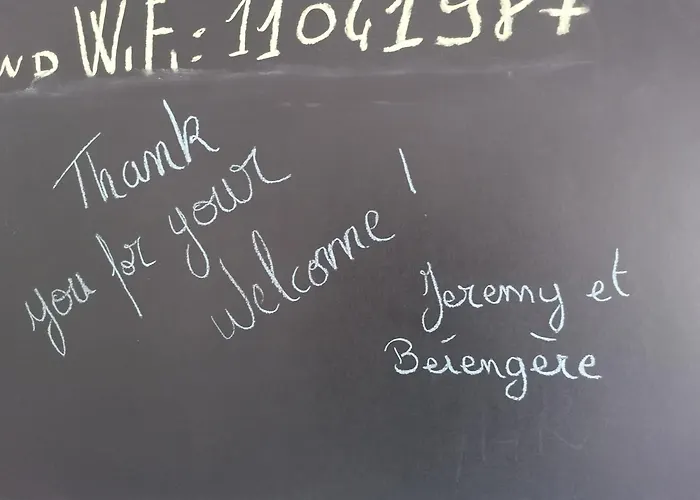 ND Wifi: 11041987
Thank
you for your
Welcome !
Jeremy et
Bérengère